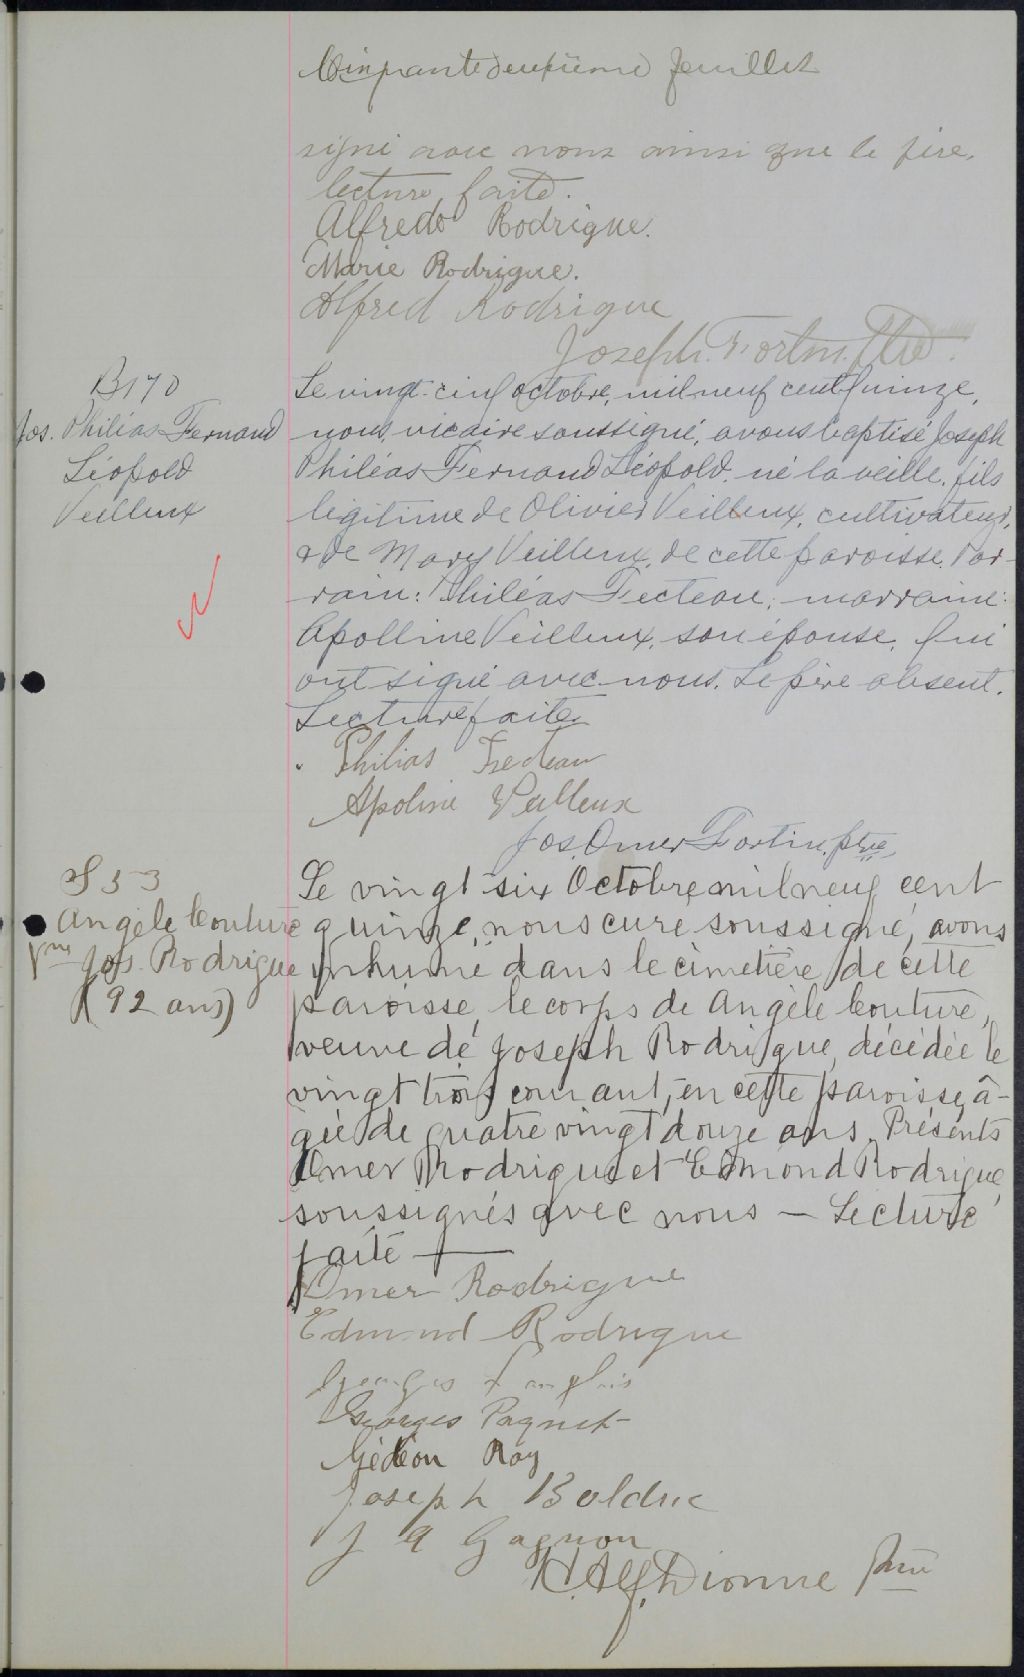 Cinquante deuxième feuillet
signé avec nous ainsi que le père,
lecture faite.
Alfredo Rodrigue.
Marie Rodrigue.
Alfred Rodrigue
Joseph. Fortin. Ptre.
B 170
Jos. Philéas Fernand
Léopold
Veilleux
Le vingt-cinq octobre, mil neuf cent quinze,
nous, vicaire soussigné, avons baptisé Joseph
Philéas Fernand Léopold, né la veille, fils
légitime de Olivier Veilleux, cultivateur,
& de Mary Veilleux, de cette paroisse. Par-
rain: Philéas Fecteau; marraine:
Apolline Veilleux, son épouse, qui
ont signé avec nous. Le père absent.
Lecture faite.
Philias Fecteau
Apoline Veilleux
Jos. Omer Fortin, ptre
S 53
Angèle Couture
Vve Jos. Rodrigue
(92 ans)
Le vingt six Octobre mil neuf cent
quinze, nous curé soussigné, avons
inhumé dans le cimetière de cette
paroisse, le corps de Angèle Couture,
veuve de Joseph Rodrigue, décédée le
vingt trois courant, en cette paroisse, â-
gée de quatre vingt douze ans. Présents
Omer Rodrigue et Edmond Rodrigue,
soussignés avec nous — Lecture
faite —
Omer Rodrigue
Edmond Rodrigue
Georges
Georges Paquet
Gédéon Roy
Joseph Bolduc
J A Gagnon
Alf. Dionne Ptre